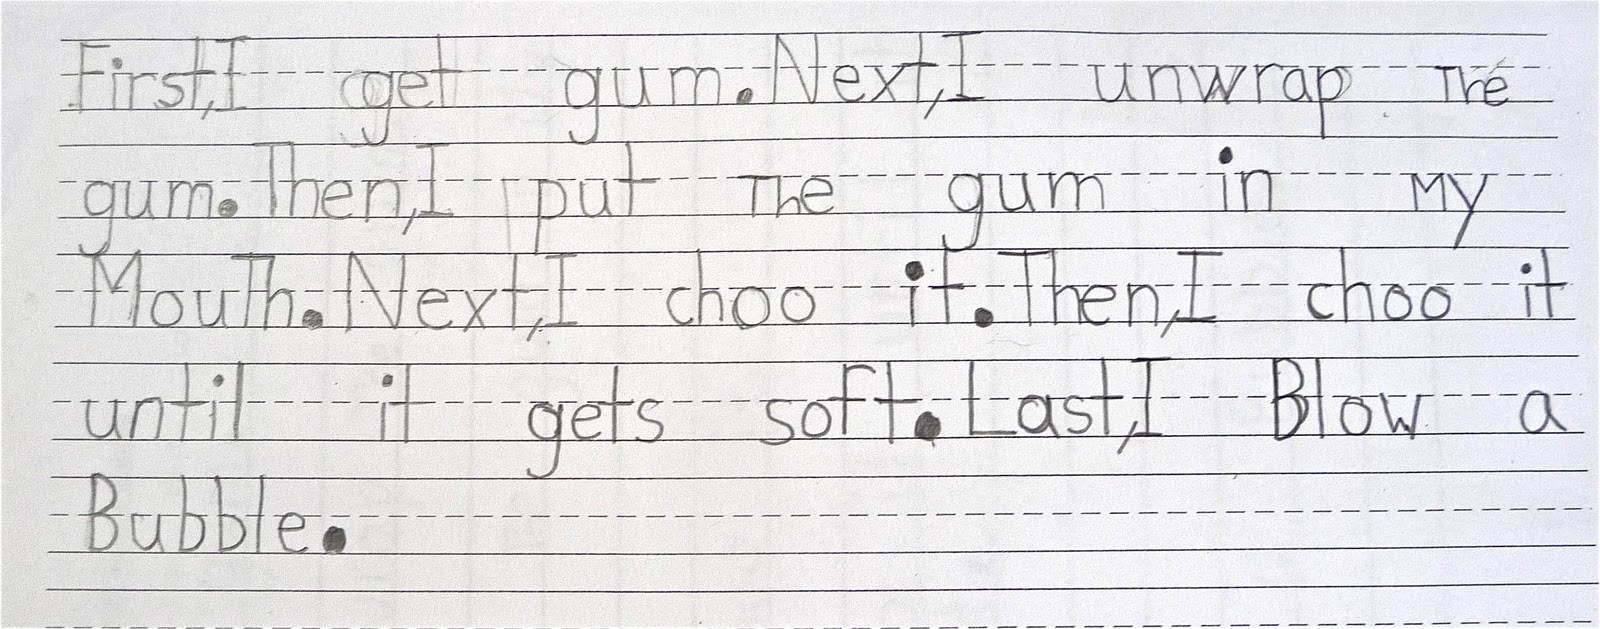 First,I get gum.Next,I unwrap The
gum.Then,I put The gum in My
MouTh.Next,I choo it.Then,I choo it
until it gets soft.Last,I Blow a
Bubble.